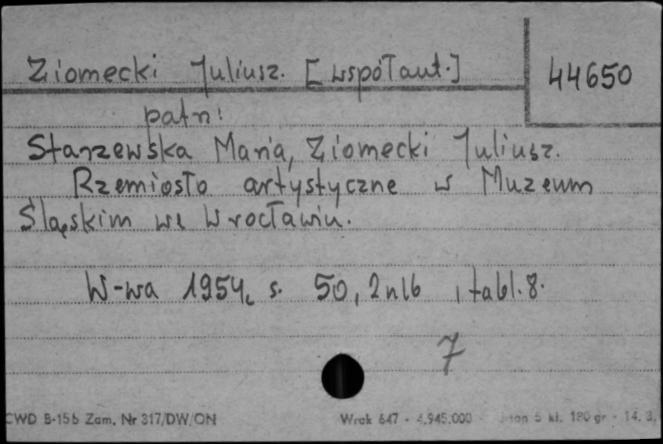 Ziomecki Juliusz. [współaut.]
44650
patrz:
Starzewska Maria, Ziomecki Juliusz.
Rzemiosło artystyczne w Muzeum
Śląskim we Wrocławiu.
W-wa 1954, s. 50, 2nlb, tabl. 8.
7
CWD B-15b Zam. Nr 317/DW/ON
Wrak 647 - 4.945.000 5 kl. 180 gr - 14. 3.